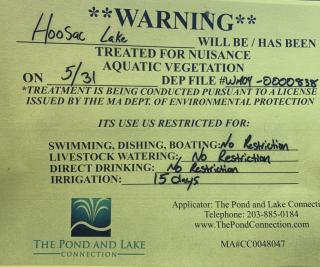 **WARNING**
HOOSAC Lake WILL BE / HAS BEEN
TREATED FOR NUISANCE
AQUATIC VEGETATION
ON 5/31 DEP FILE #WM04-0000838
*TREATMENT IS BEING CONDUCTED PURSUANT TO A LICENSE
ISSUED BY THE MA DEPT. OF ENVIRONMENTAL PROTECTION
ITS USE US RESTRICTED FOR:
SWIMMING, DISHING, BOATING: No Restriction
LIVESTOCK WATERING: No Restriction
DIRECT DRINKING: No Restriction
IRRIGATION: 15 days
Applicator: The Pond and Lake Connection
Telephone: 203-885-0184
www.ThePondConnection.com
THE POND AND LAKE
CONNECTION
MA#CC0048047